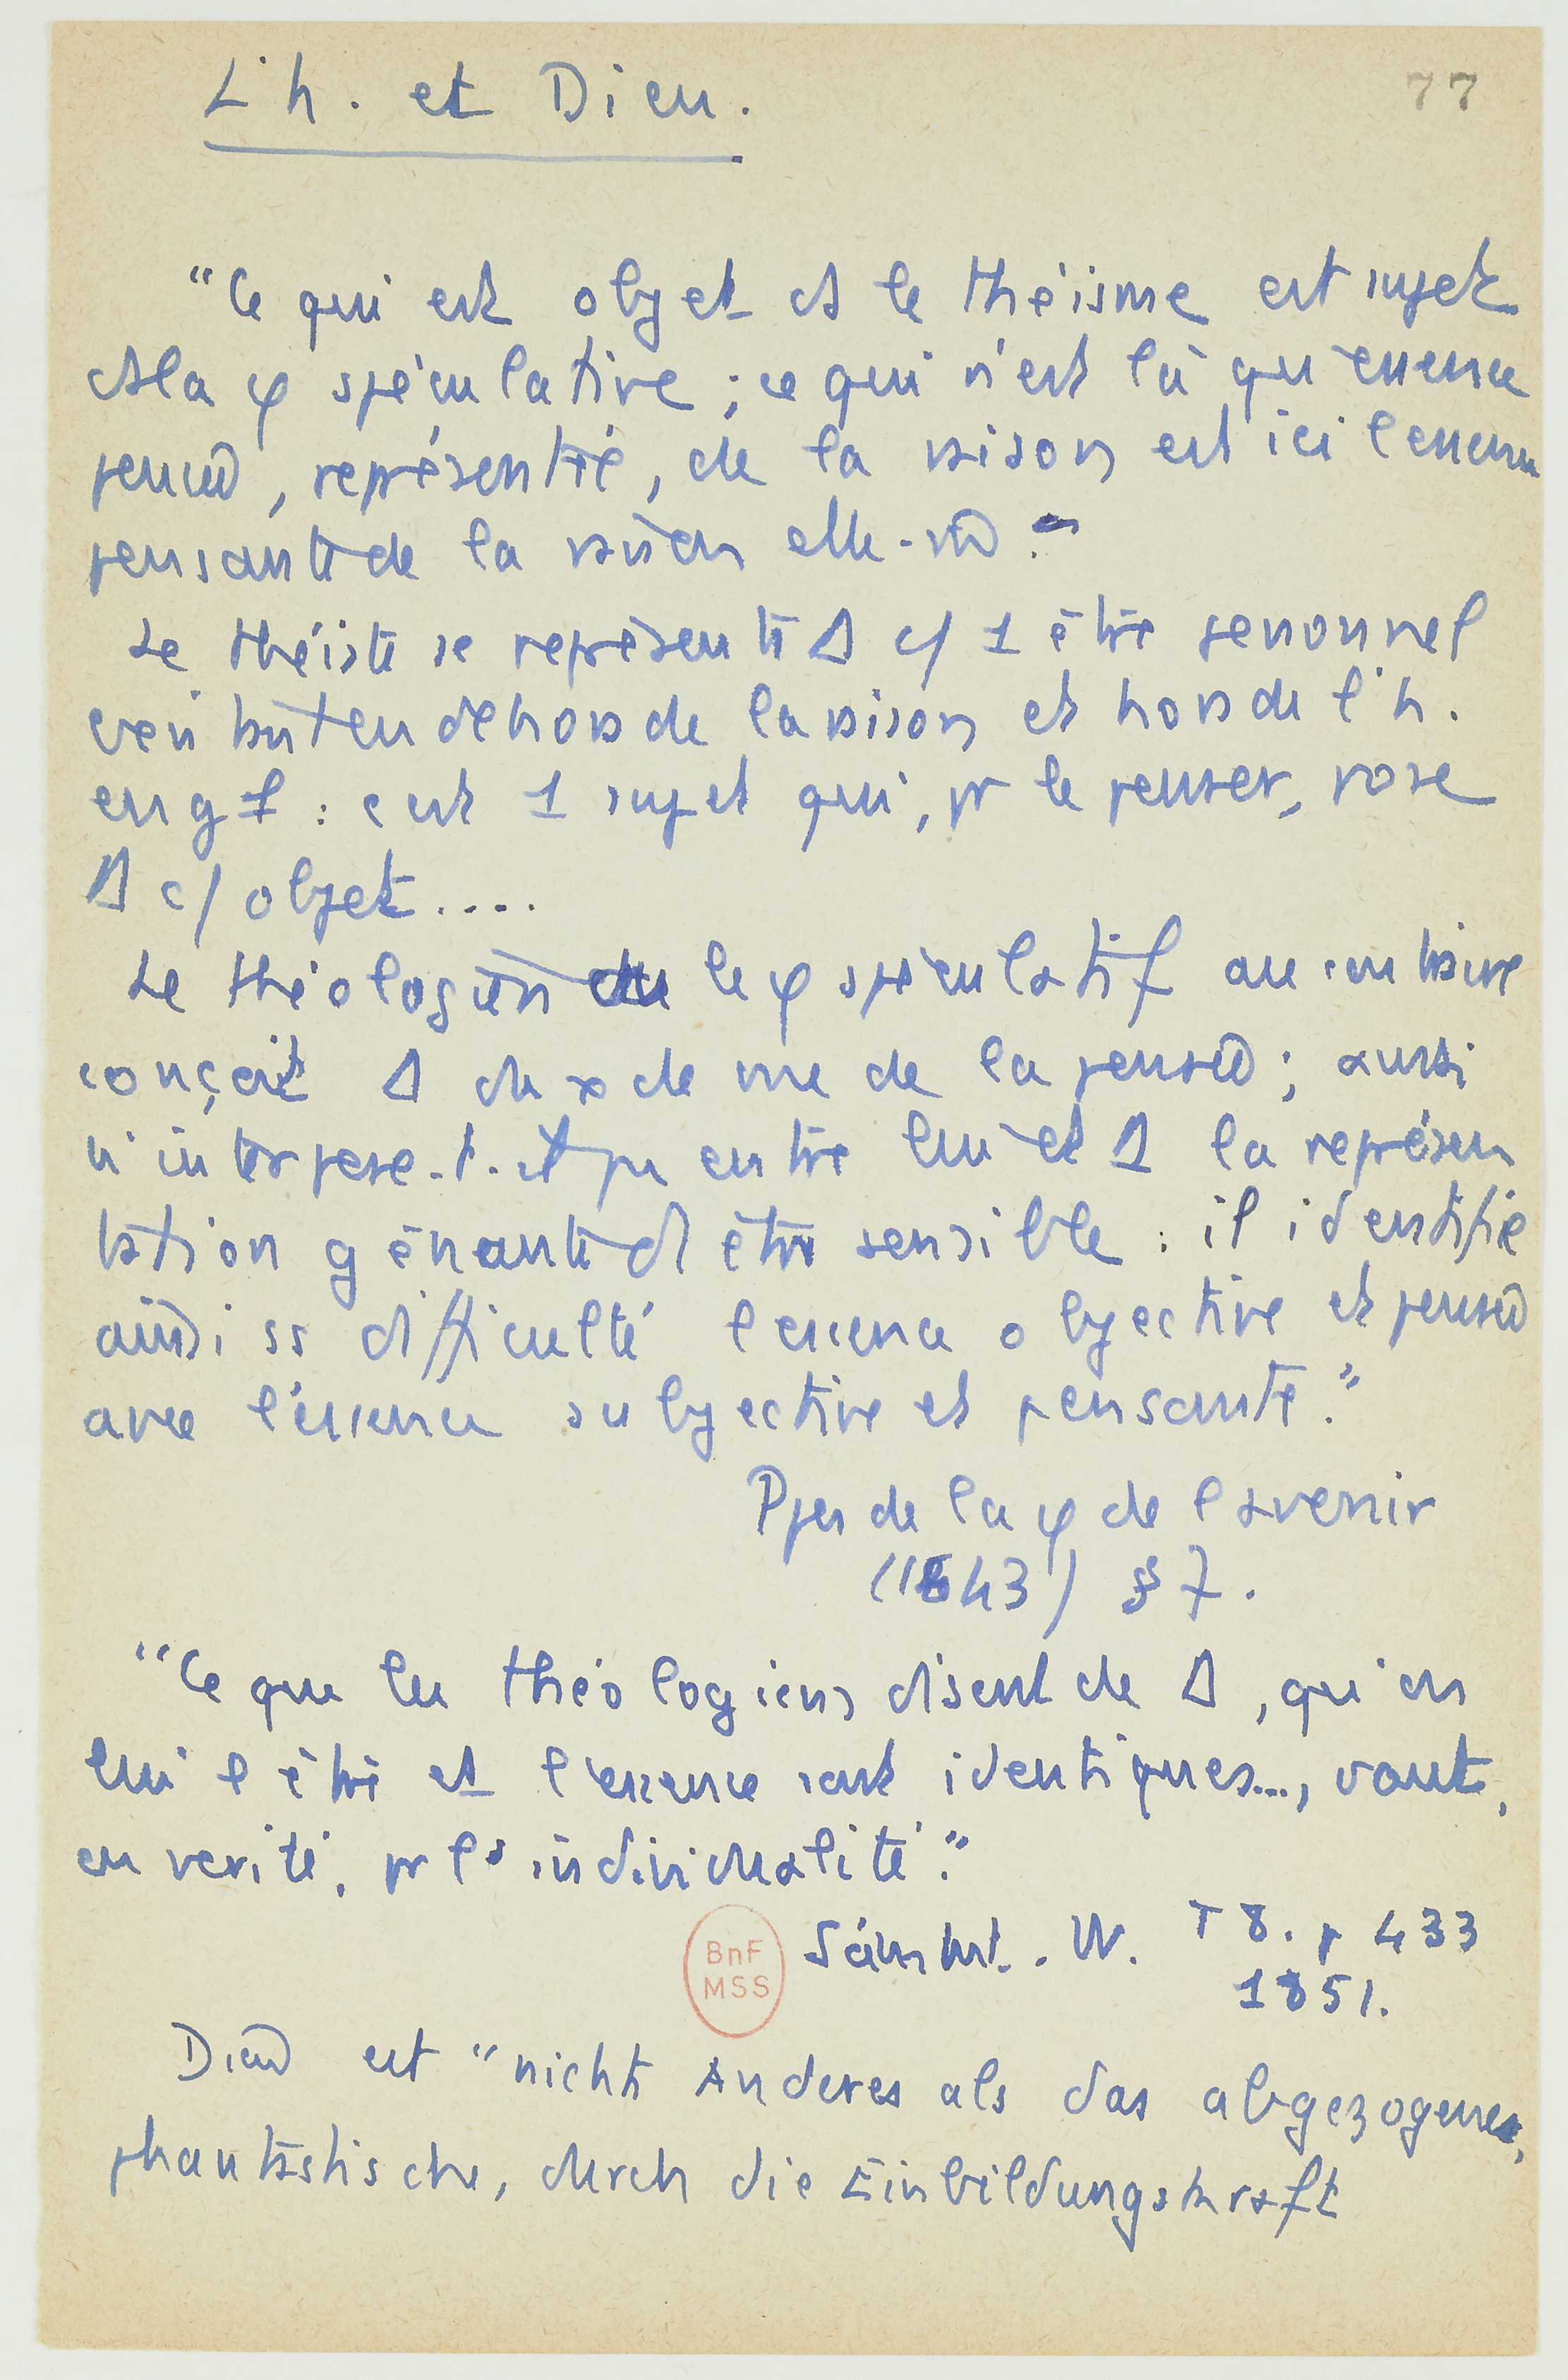 L'h. et Dieu.
77
"Ce qui est objet ds le théisme est sujet
ds la φ spéculative ; ce qui n'est là qu'essence
pensée, représentée, de la raison est ici l'essence
pensante de la raison elle-m̂.
Le théiste se représente Δ c/ 1 être personnel
existant en dehors de la raison et hors de l'h.
en gl : c'est 1 sujet qui, pr le penser, pose
Δ c/ objet....
Le théologien le φ spéculatif au contraire
conçoit Δ du x de vue de la pensée ; aussi
n'interpose-t-il pas entre lui et Δ la représen
tation gênante d'1 être sensible : il identifie
ainsi ss difficulté l'essence objective et pensée
avec l'essence subjective et pensante."
Ppes de la φ de l'avenir
(1843) § 7.
"Ce que les théologiens disent de Δ, qu'en
lui l'être et l'essence sont identiques..., vaut,
en vérité, pr l'individualité."
BnF
MSS
Sämmt. W. T 8. p 433
1851.
Dieu est "nichts Anderes als das abgezogene,
phantastische, durch die Einbildungskraft